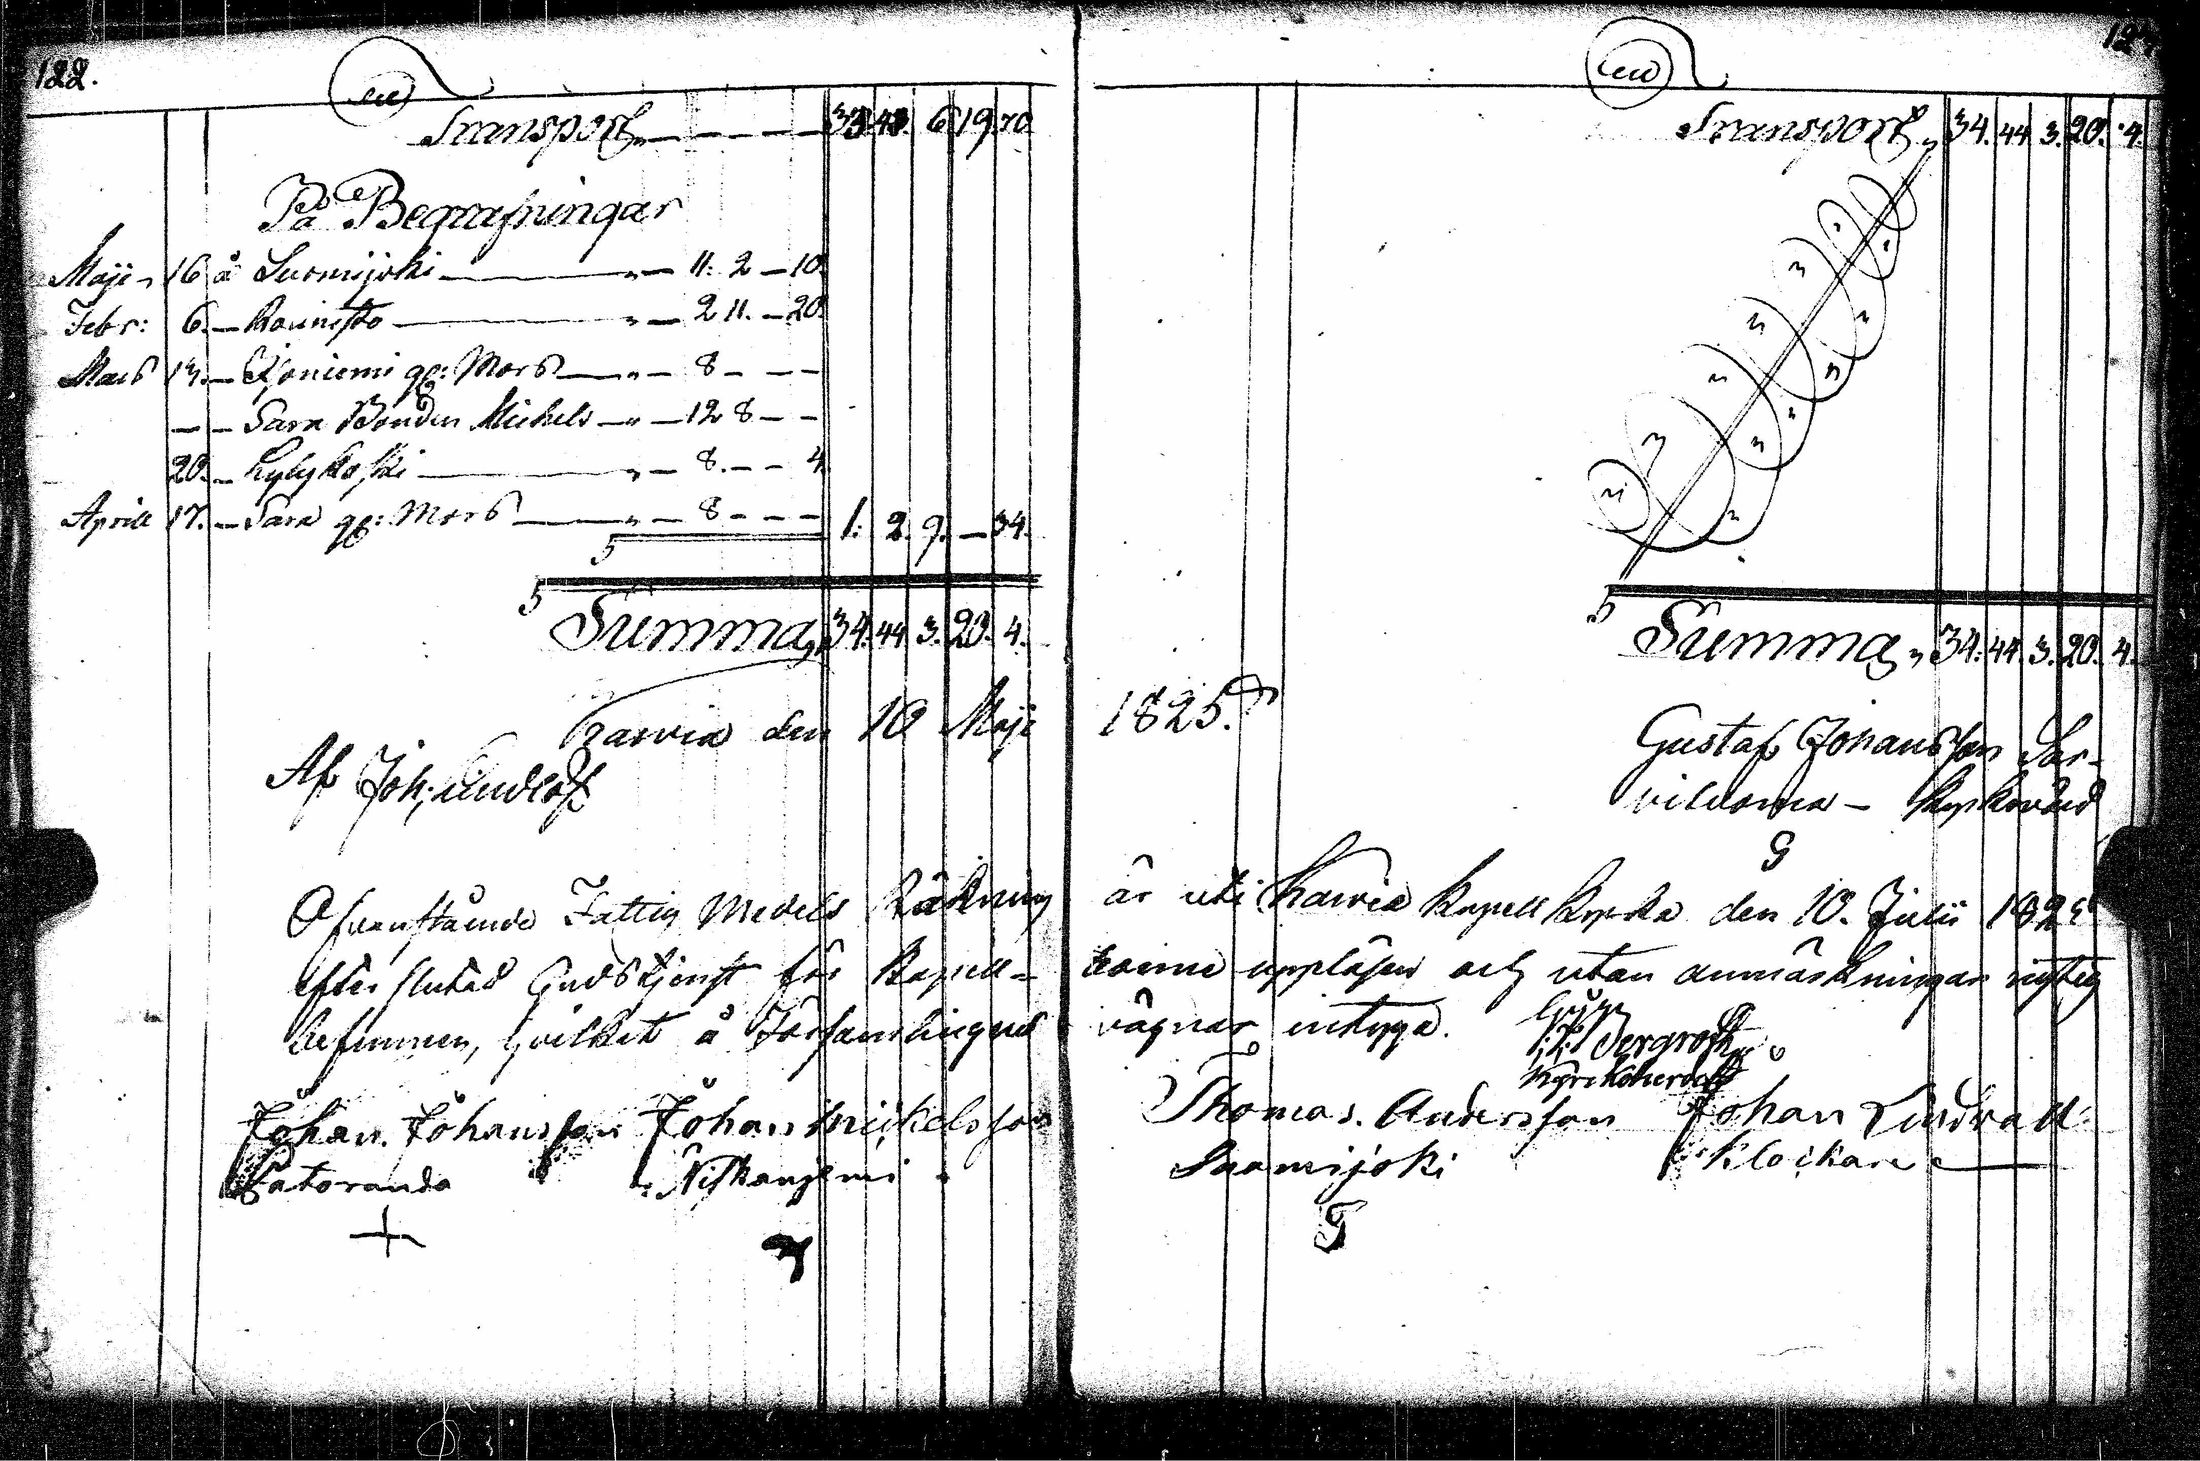 122.
Transport 33. 43. 6 19 70
På Begrafningar
Maji 16 å Suomijoki 11. 2 — 10.
Febr: 6. — Rounisto — 2 11. — 20.
Mars 13. — Kjoniemi gl: Mors — 8 — — —
— — Sara Bonden Mickels — 12 8 — —
20. — Kylykoski — 8. — — 4.
Aprill 17. — Sara gl: Mors — 8 — — — 1. 2. 9. — 34.
Summa 34. 44. 3. 20. 4.
Karvia den 10 Maji
Af Joh: Lindroth
Ofvanstående Fattig Medels Räkning
efter slutad Gudstjenst för Kapell-
befunnen, hvilket å Församlingens
Johan Johansson Johan Mickelsson
Latoranda Nitkanjemi
Transport 34. 44. 3. 20. 4.
Summa 34. 44. 3. 20. 4.
1825.
Gustaf Johansson Sar-
vilvoma — Kyrkovärd
G
är uti Karvia Kapell Kyrka den 10. Julii 1825
boerne uppläsen och utan anmärkningar rigtig
vägnar intyga.
Bergroth
Kyrkoherde
Thomas Andersson Johan Lindroth
Suomijoki Klockare